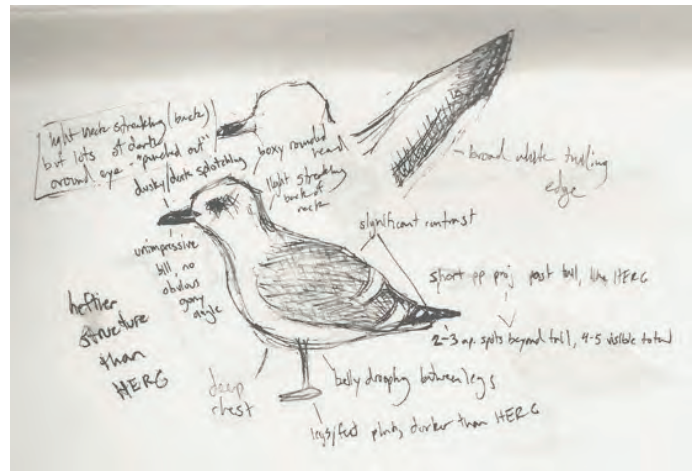 light neck streaking (back)
but lots of dark
around eye - "punched out"
dusky/dark splotching
boxy rounded
head
light streaking
back of
neck
broad white trailing
edge
unimpressive
bill, no
obvious
gony
angle
significant contrast
short pp proj past tail, like HERG
2-3 ap. spots beyond tail, 4-5 visible total
heftier
structure
than
HERG
deep
chest
belly drooping between legs
legs/feet pink, darker than HERG